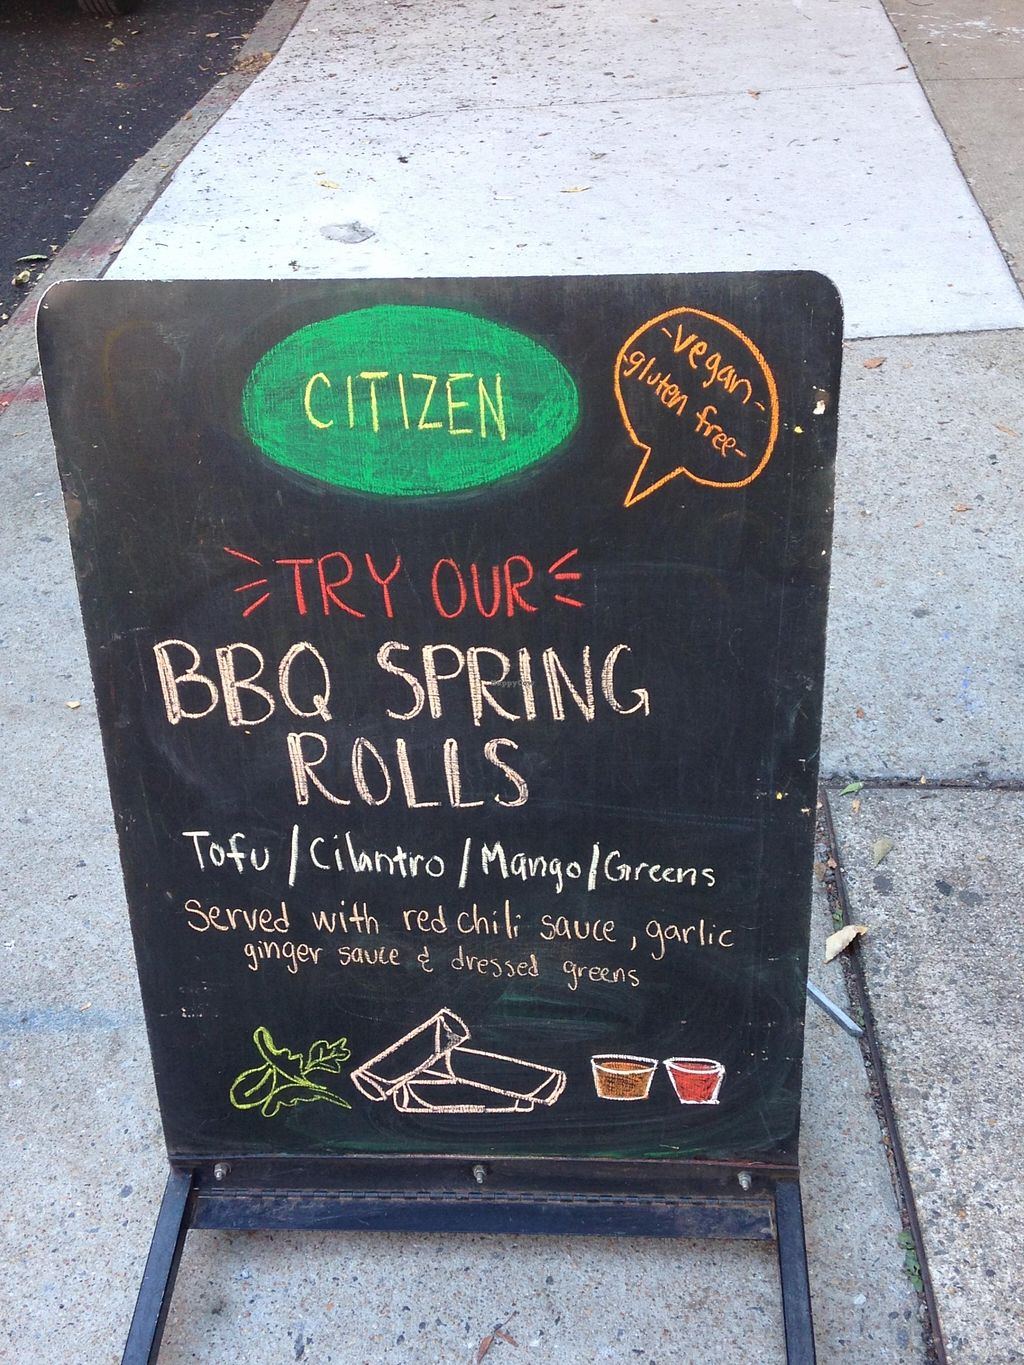 CITIZEN
-vegan-
-gluten free-
TRY OUR
BBQ SPRING
ROLLS
Tofu / Cilantro / Mango / Greens
Served with red chili sauce, garlic
ginger sauce & dressed greens
HappyCow